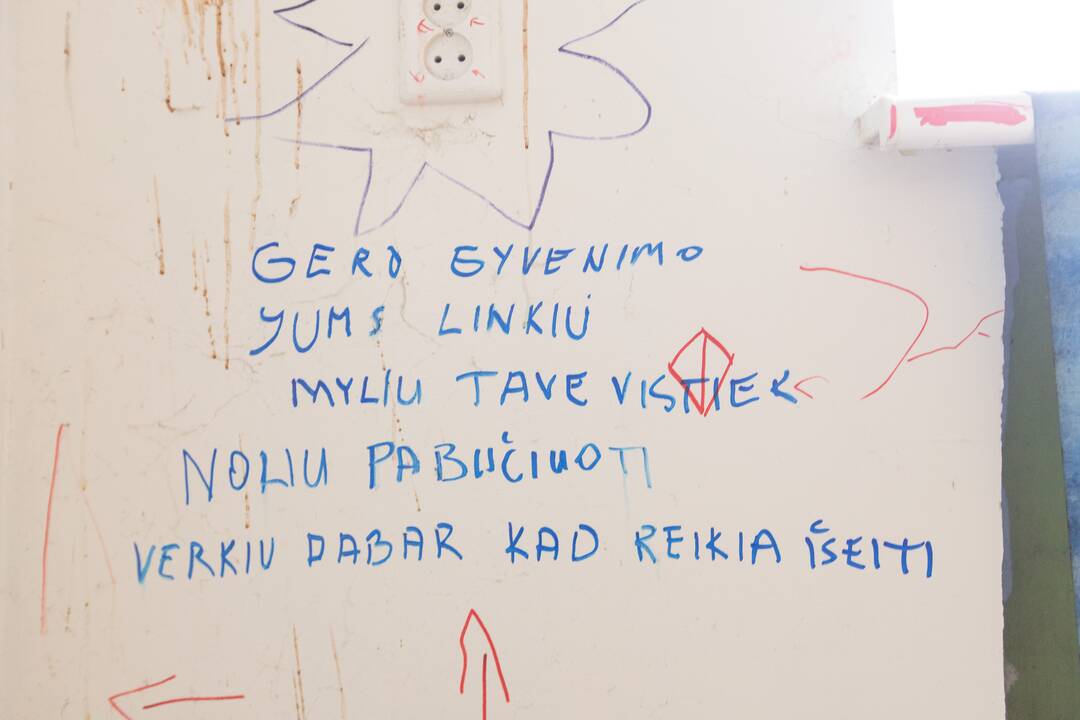 GERO GYVENIMO
YUMS LINKIU
MYLIU TAVE VISTIEK
NOLIU PABUČIUOTI
VERKIU DABAR KAD REIKIA IŠEITI